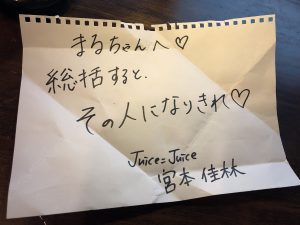 まるちゃんへ♡
総括すると、
その人になりきれ♡
Juice=Juice
宮本佳林